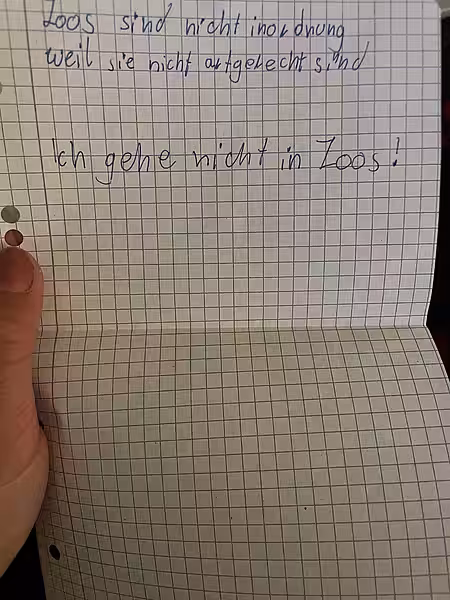 Zoos sind nicht inordnung
weil sie nicht artgerecht sind
Ich gehe nicht in Zoos!